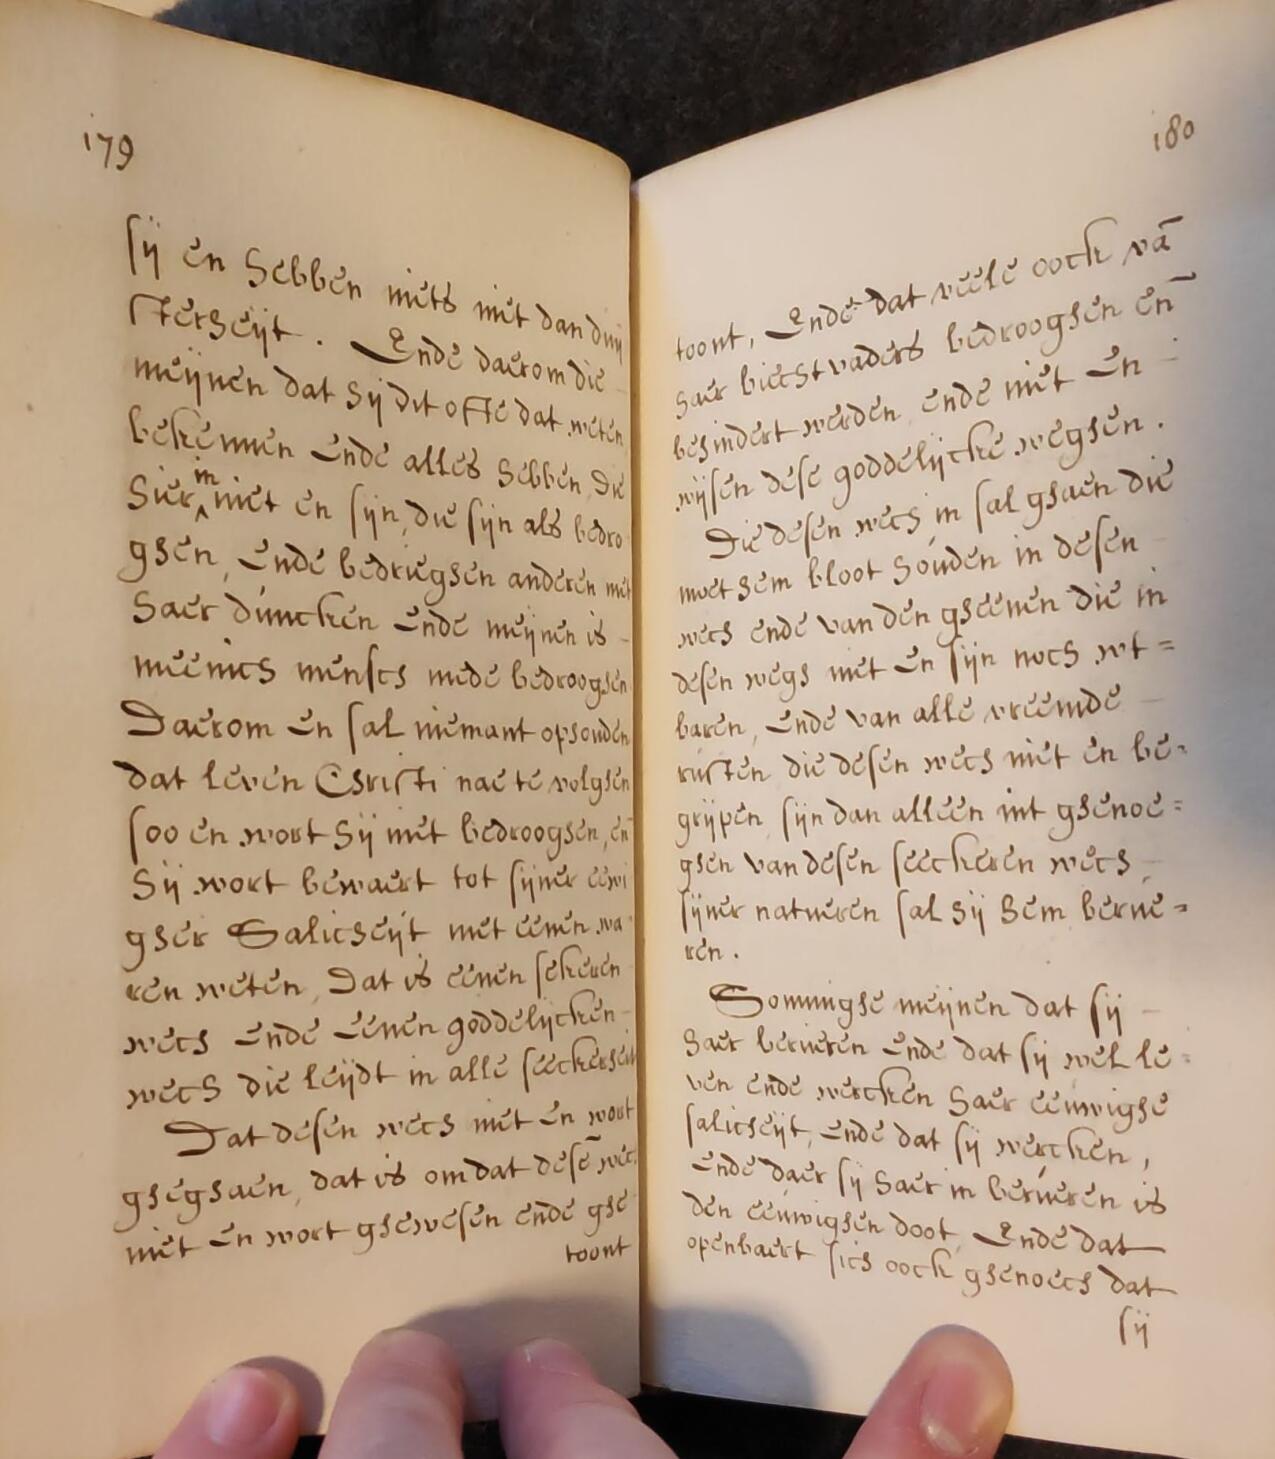 179
sij en hebben niets niet dan duij
sterheijt. Ende daerom die
meijnen dat sij dit ofte dat weten
bekennen ende alles hebben, die
hier in niet en sijn, die sijn als bedro
ghen, ende bedrieghen anderen met
haer duncken ende meijnen is
meenich mensch mede bedrooghen
Daerom en sal niemant ophouden
dat leven Christi nae te volghen
soo en wort hij niet bedrooghen, en̄
hij wort bewaert tot sijner eewi
gher Salicheijt met eenen wa
ren weten, dat is eenen sekeren
wech ende eenen goddelijcken
wech die leijdt in alle seeckerheijt
Dat desen wech niet en wort
gheghaen, dat is om dat desē wech
niet en wort ghewesen ende ghe
toont
180
toont, Ende dat veele oock vā
haer biechtvaders bedrooghen en̄
behindert werden ende niet en
wijsen dese goddelijcke weghen.
Die desen wech in sal ghaen die
moet hem bloot houden in desen
wech ende van den gheenen die in
desen wegh niet en sijn noch wt=
baren, ende van alle vreemde
rusten die desen wech niet en be=
grijpen, sijn dan alleen int ghenoe=
ghen van desen seeckeren wech,
sijner natueren sal hij hem berue=
ren.
Sommighe meijnen dat sij
haer berueren ende dat sij wel le=
ven ende wercken haer eeuwighe
salicheijt, ende dat sij wercken,
ende daer sij haer in berueren is
den eeuwighen doot, Ende dat
openbaert sich oock ghenoech dat
sij